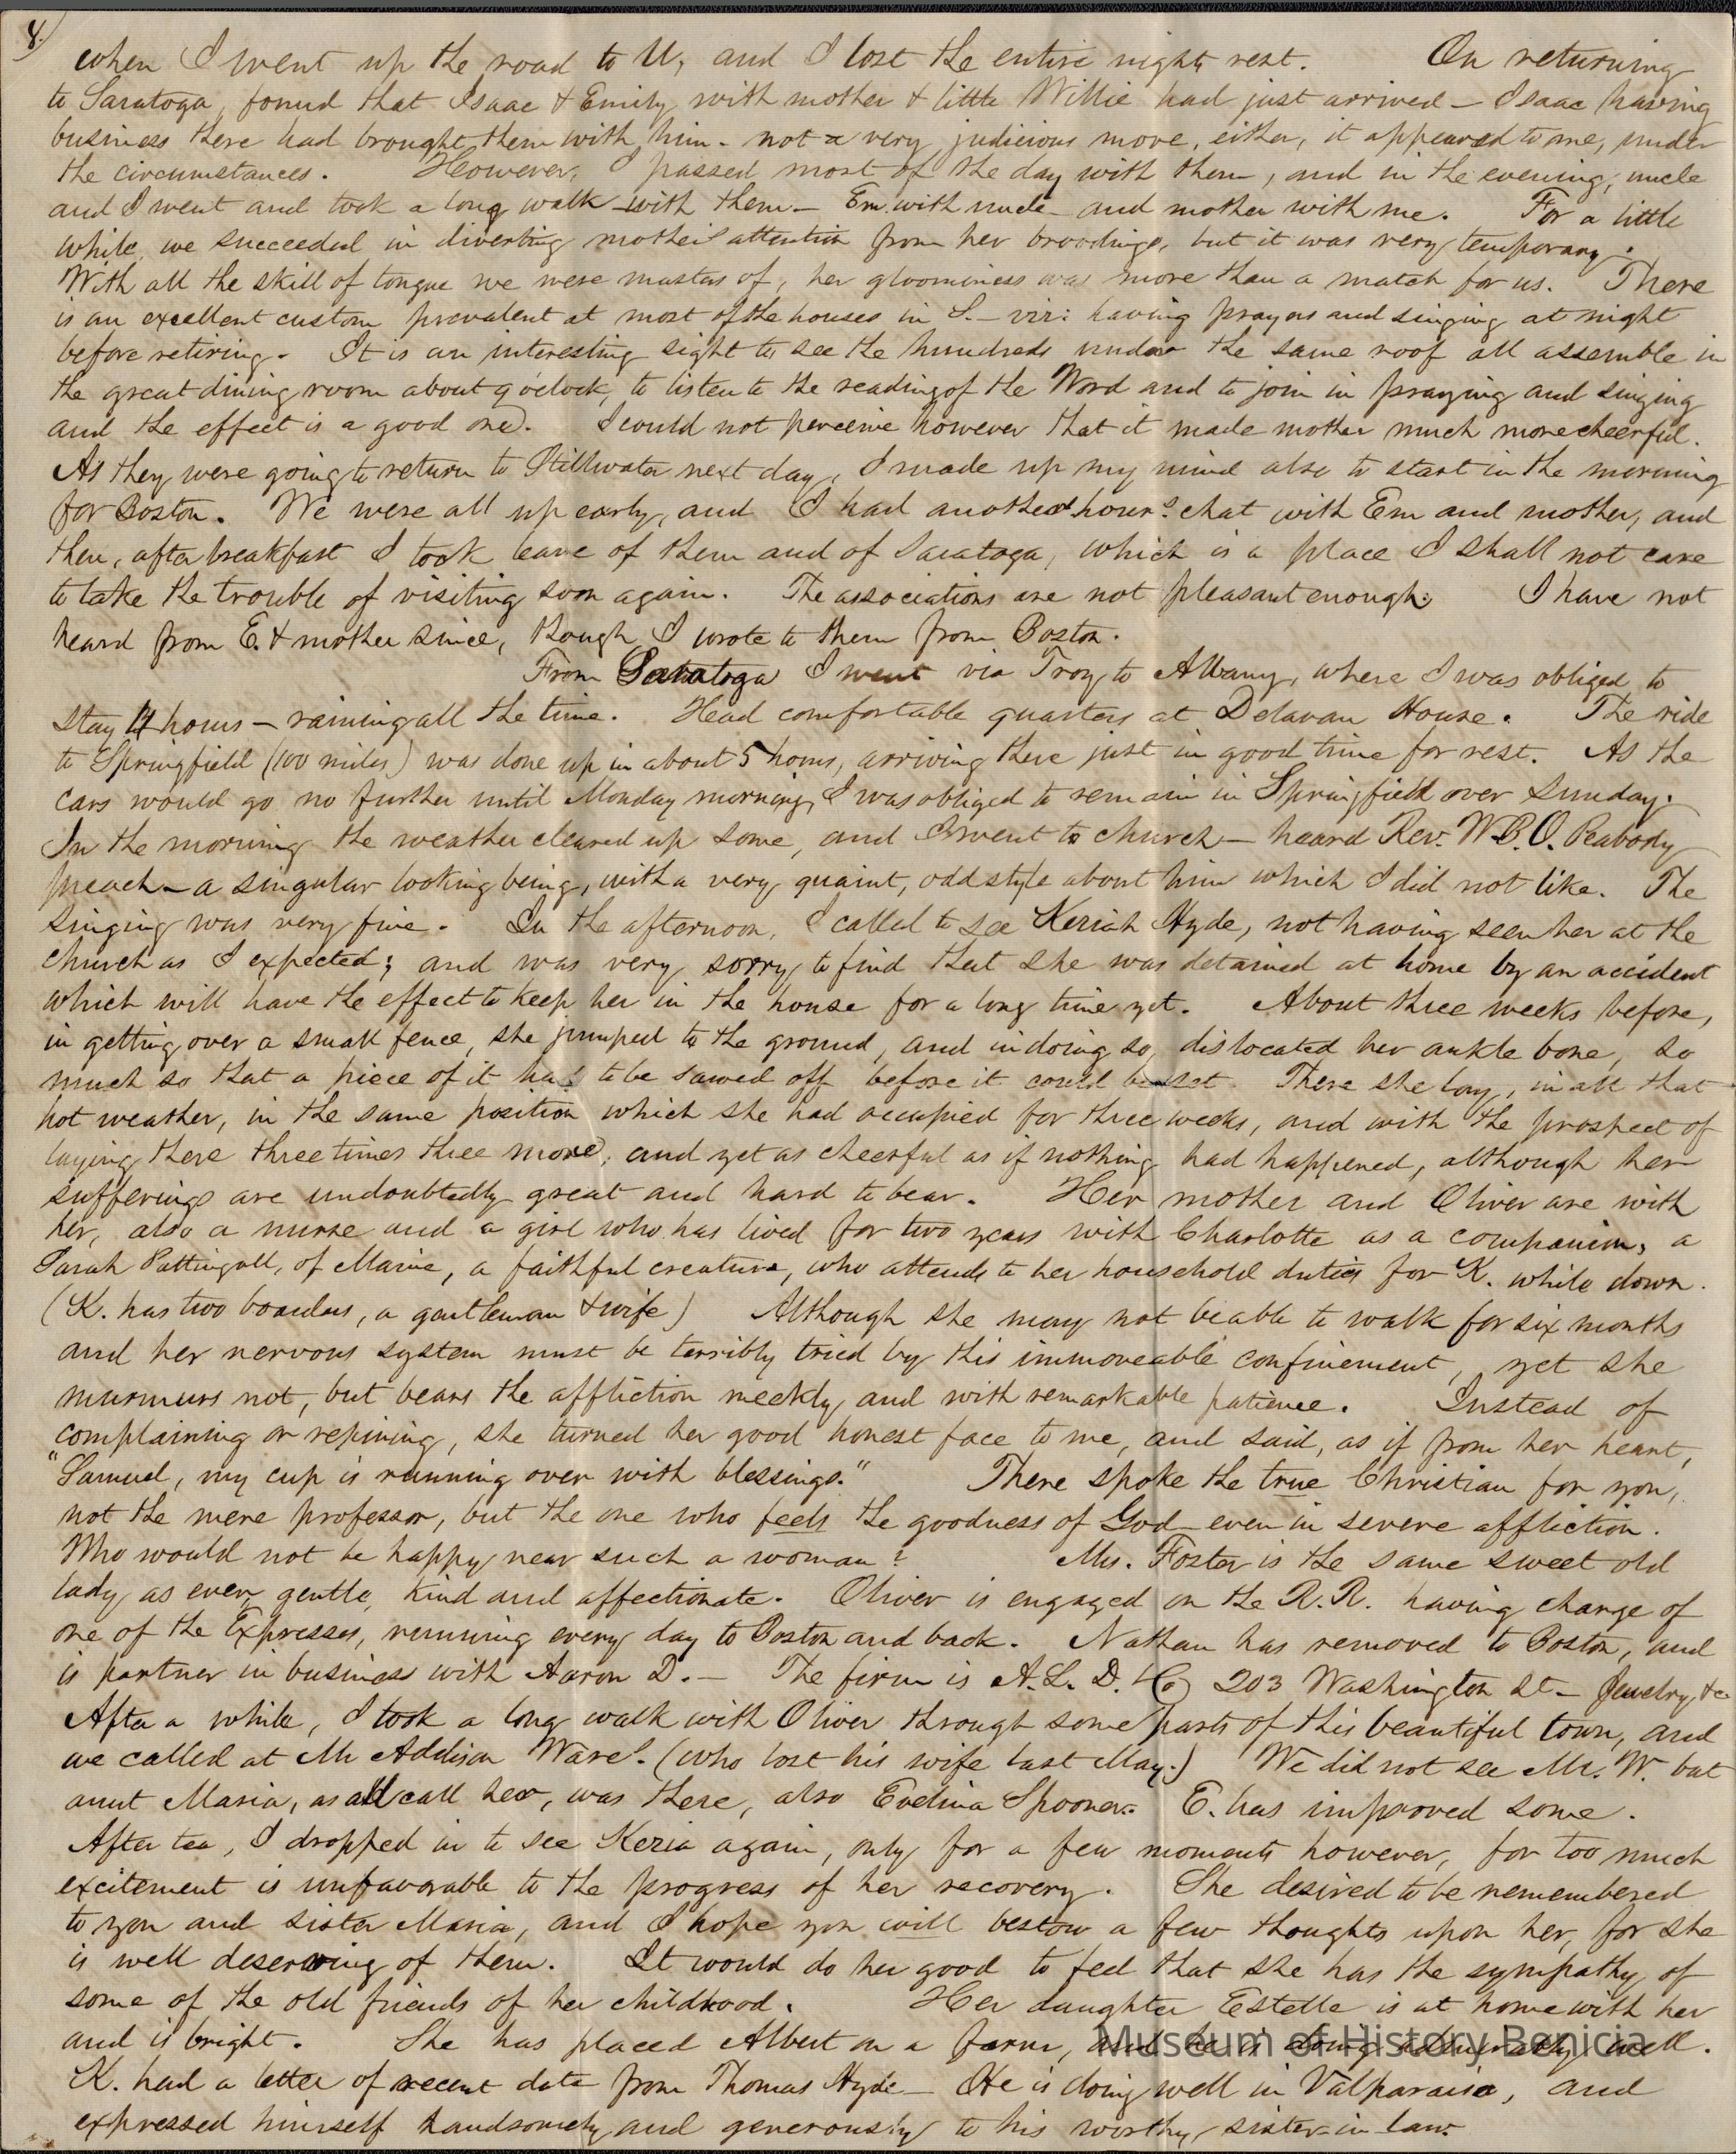 8.)
when I went up the road to U, and I lost the entire nights rest. On returning
to Saratoga, found that Isaac & Emily with mother & little Willie had just arrived — Isaac having
business there had brought them with him - not a very judicious move, either, it appeared to me, under
the circumstances. However, I passed most of the day with them, and in the evening, uncle
and I went and took a long walk with them — Em. with uncle and mother with me. For a little
while, we succeeded in diverting mother's attention from her broodings, but it was very temporary.
With all the skill of tongue we were masters of, her gloominess was more than a match for us. There
is an excellent custom prevalent at most of the houses in S. — viz: having prayers and singing at night
before retiring. It is an interesting sight to see the hundreds under the same roof all assemble in
the great dining room about 9 o'clock, to listen to the reading of the Word and to join in praying and singing
and the effect is a good one. I could not perceive however that it made mother much more cheerful.
As they were going to return to Stillwater next day, I made up my mind also to start in the morning
for Boston. We were all up early, and I had another hour's chat with Em and mother, and
then, after breakfast I took leave of them and of Saratoga, which is a place I shall not care
to take the trouble of visiting soon again. The associations are not pleasant enough. I have not
heard from E. & mother since, though I wrote to them from Boston.
From Saratoga I went via Troy to Albany, where I was obliged to
stay 4 hours — raining all the time. Had comfortable quarters at Delavan House. The ride
to Springfield (100 miles) was done up in about 5 hours, arriving there just in good time for rest. As the
cars would go no further until Monday morning, I was obliged to remain in Springfield over Sunday.
In the morning the weather cleared up some, and I went to church — heard Rev. W.B.O. Peabody
preach — a singular looking being, with a very quaint, odd style about him which I did not like. The
singing was very fine. In the afternoon, I called to see Keriah Hyde, not having seen her at the
church as I expected; and was very sorry to find that she was detained at home by an accident
which will have the effect to keep her in the house for a long time yet. About three weeks before,
in getting over a small fence, she jumped to the ground, and in doing so, dislocated her ankle bone, so
much so that a piece of it had to be sawed off before it could be set. There she lay, in all that
hot weather, in the same position which she had occupied for three weeks, and with the prospect of
laying there three times three more, and yet as cheerful as if nothing had happened, although her
sufferings are undoubtedly great and hard to bear. Her mother and Oliver are with
her, also a nurse and a girl who has lived for two years with Charlotte as a companion, a
Sarah Pattingall, of Maine, a faithful creature, who attends to her household duties for K. while down.
(K. has two boarders, a gentleman & wife) Although she may not be able to walk for six months
and her nervous system must be terribly tried by this immoveable confinement, yet she
murmurs not, but bears the affliction meekly, and with remarkable patience. Instead of
complaining or repining, she turned her good honest face to me, and said, as if from her heart,
"Samuel, my cup is running over with blessings." There spoke the true Christian for you,
not the mere professor, but the one who feels the goodness of God even in severe affliction.
Who would not be happy near such a woman? Mrs. Foster is the same sweet old
lady as ever, gentle, kind and affectionate. Oliver is engaged on the R.R. having charge of
one of the Expresses, running every day to Boston and back. Nathan has removed to Boston, and
is partner in business with Aaron D. — The firm is A.L.D. & Co 203 Washington St — Jewelry, &c
After a while, I took a long walk with Oliver through some parts of this beautiful town, and
we called at Mr Addison Ware's. (who lost his wife last May.) We did not see Mr. W. but
aunt Maria, as all call her, was there, also Evelina Spooner. E. has improved some.
After tea, I dropped in to see Keria again, only for a few moments however, for too much
excitement is unfavorable to the progress of her recovery. She desired to be remembered
to you and sister Maria, and I hope you will bestow a few thoughts upon her, for she
is well deserving of them. It would do her good to feel that she has the sympathy of
some of the old friends of her childhood. Her daughter Estelle is at home with her
and is bright. She has placed Albert on a farm, and he is doing admirably well.
K. had a letter of recent date from Thomas Hyde — He is doing well in Valparaiso, and
expressed himself handsomely and generously to his worthy sister-in-law.
Museum of History Benicia